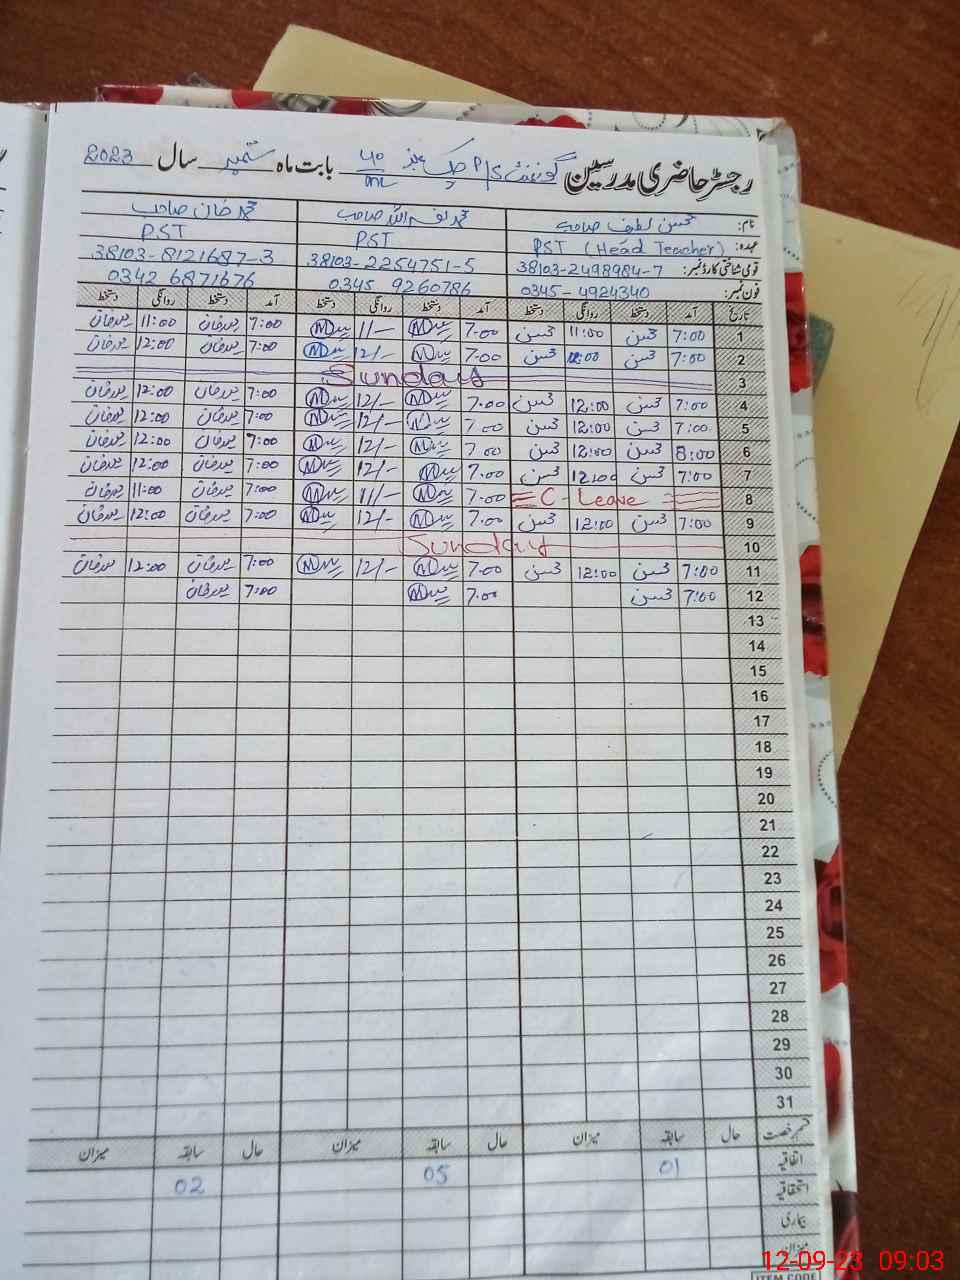 رجسٹر حاضری مدرسین گورنمنٹ P/S چک نمبر 40/ML بابت ماہ ستمبر سال 2023
نام: محسن لطیف صاحب محمد نصراللہ صاحب محمد خان صاحب
عہدہ: PST (Head Teacher) PST PST
قومی شناختی کارڈ نمبر: 38103-2498984-7 38103-2254751-5 38103-8121687-3
فون نمبر: 0345-4924340 0345 9260786 0342 6871676
تاریخ آمد دستخط روانگی دستخط آمد دستخط روانگی دستخط آمد دستخط روانگی دستخط
1 7:00 محسن 11:00 محسن 7.00 11/- 7:00 11:00
2 7:00 محسن 12:00 محسن 7.00 12/- 7:00 12:00
3 Sunday
4 7:00 محسن 12:00 محسن 7.00 12/- 7:00 12:00
5 7:00 محسن 12:00 محسن 7.00 12/- 7:00 12:00
6 8:00 محسن 12:00 محسن 7.00 12/- 7:00 12:00
7 7:00 محسن 12:00 محسن 7.00 12/- 7:00 12:00
8 C-Leave 7.00 11/- 7:00 11:00
9 7:00 محسن 12:00 محسن 7.00 12/- 7:00 12:00
10 Sunday
11 7:00 محسن 12:00 محسن 7.00 12/- 7:00 12:00
12 7:00 محسن 7.00 7:00
13
14
15
16
17
18
19
20
21
22
23
24
25
26
27
28
29
30
31
قسم رخصت حال سابقہ میزان حال سابقہ میزان حال سابقہ میزان
اتفاقیہ 01 05 02
استحقاقیہ
بیماری
میزان
ITEM CODE
12-09-23 09:03